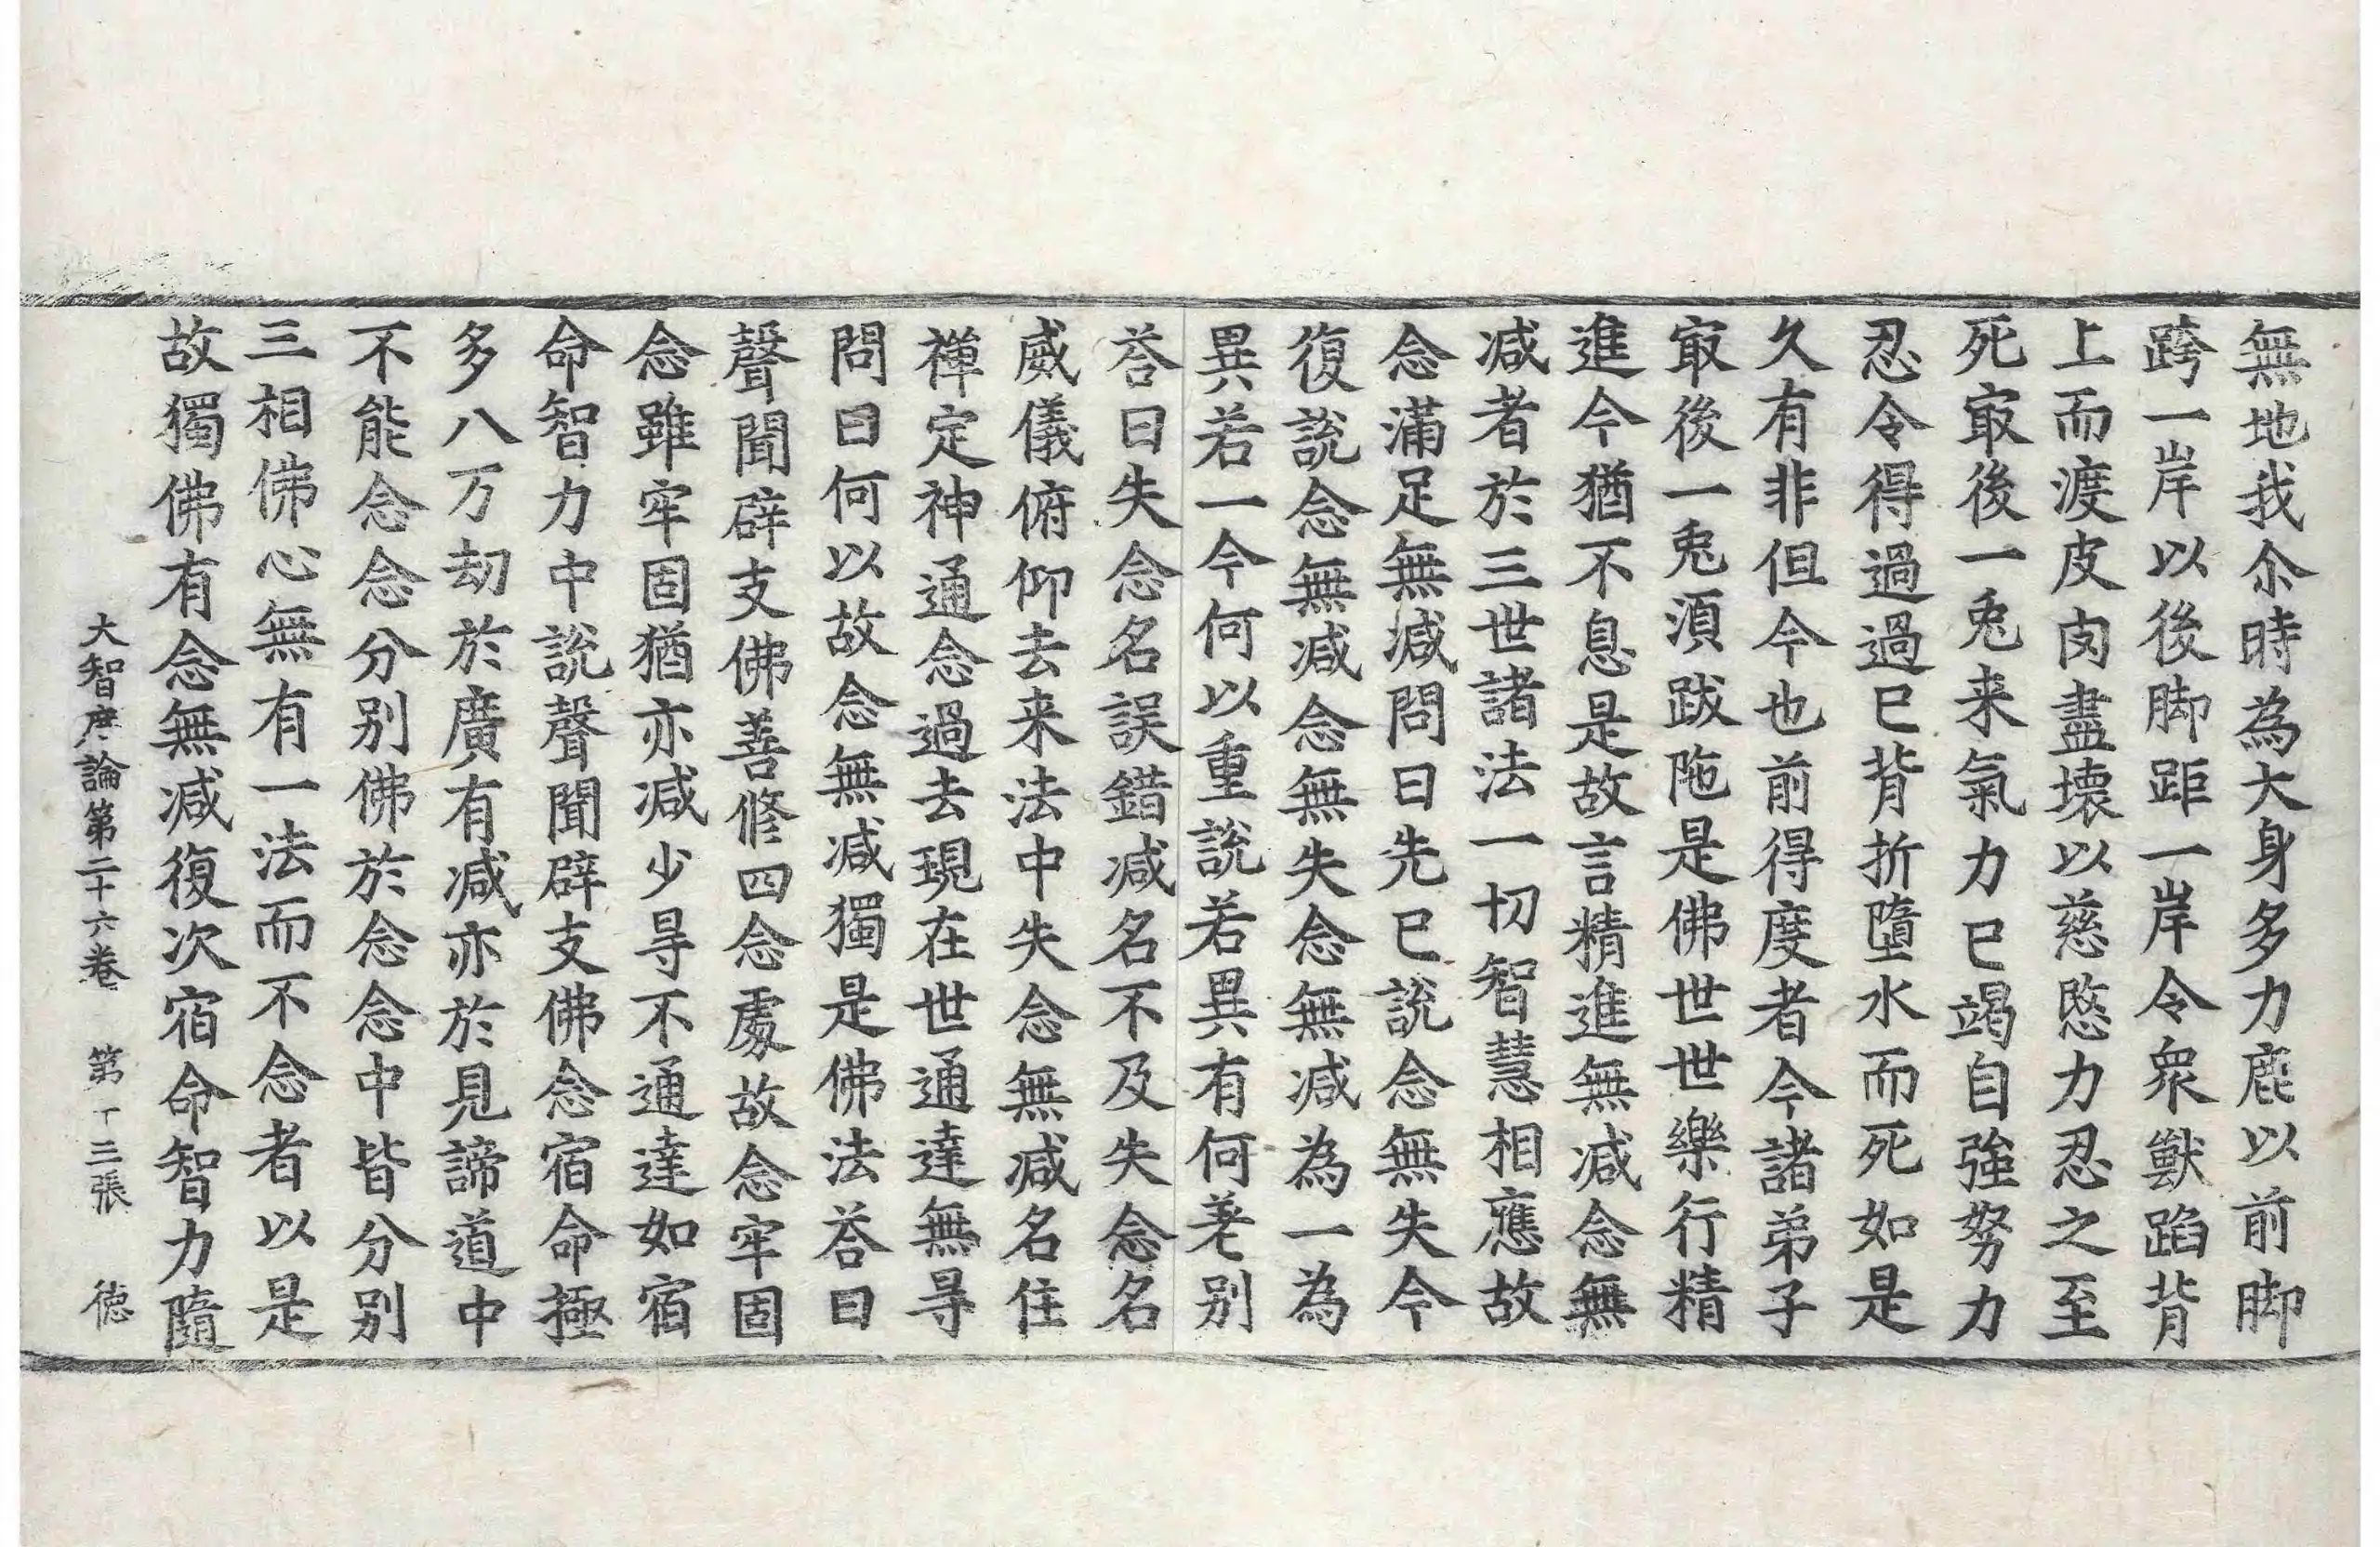 無地我尒時為大身多力鹿以前脚
跨一岸以後脚距一岸令衆獸蹈背
上而渡皮肉盡壞以慈愍力忍之至
死㝡後一兎来氣力已竭自強努力
忍令得過過已背折墮水而死如是
久有非但今也前得度者今諸弟子
㝡後一兎湏跋陁是佛世世樂行精
進今猶不息是故言精進無减念無
减者於三世諸法一切智慧相應故
念滿足無减問曰先已說念無失今
復說念無减念無失念無减為一為
異若一今何以重說若異有何差别
荅曰失念名誤錯减名不及失念名
威儀俯仰去来法中失念無减名住
禪定神通念過去現在世通達無㝵
問曰何以故念無减獨是佛法荅曰
聲聞辟支佛善修四念處故念牢固
念雖牢固猶亦减少㝵不通達如宿
命智力中說聲聞辟支佛念宿命極
多八万劫於廣有减亦於見諦道中
不能念念分别佛於念念中皆分别
三相佛心無有一法而不念者以是
故獨佛有念無减復次宿命智力隨
大智度論第二十六卷　第十三張　德